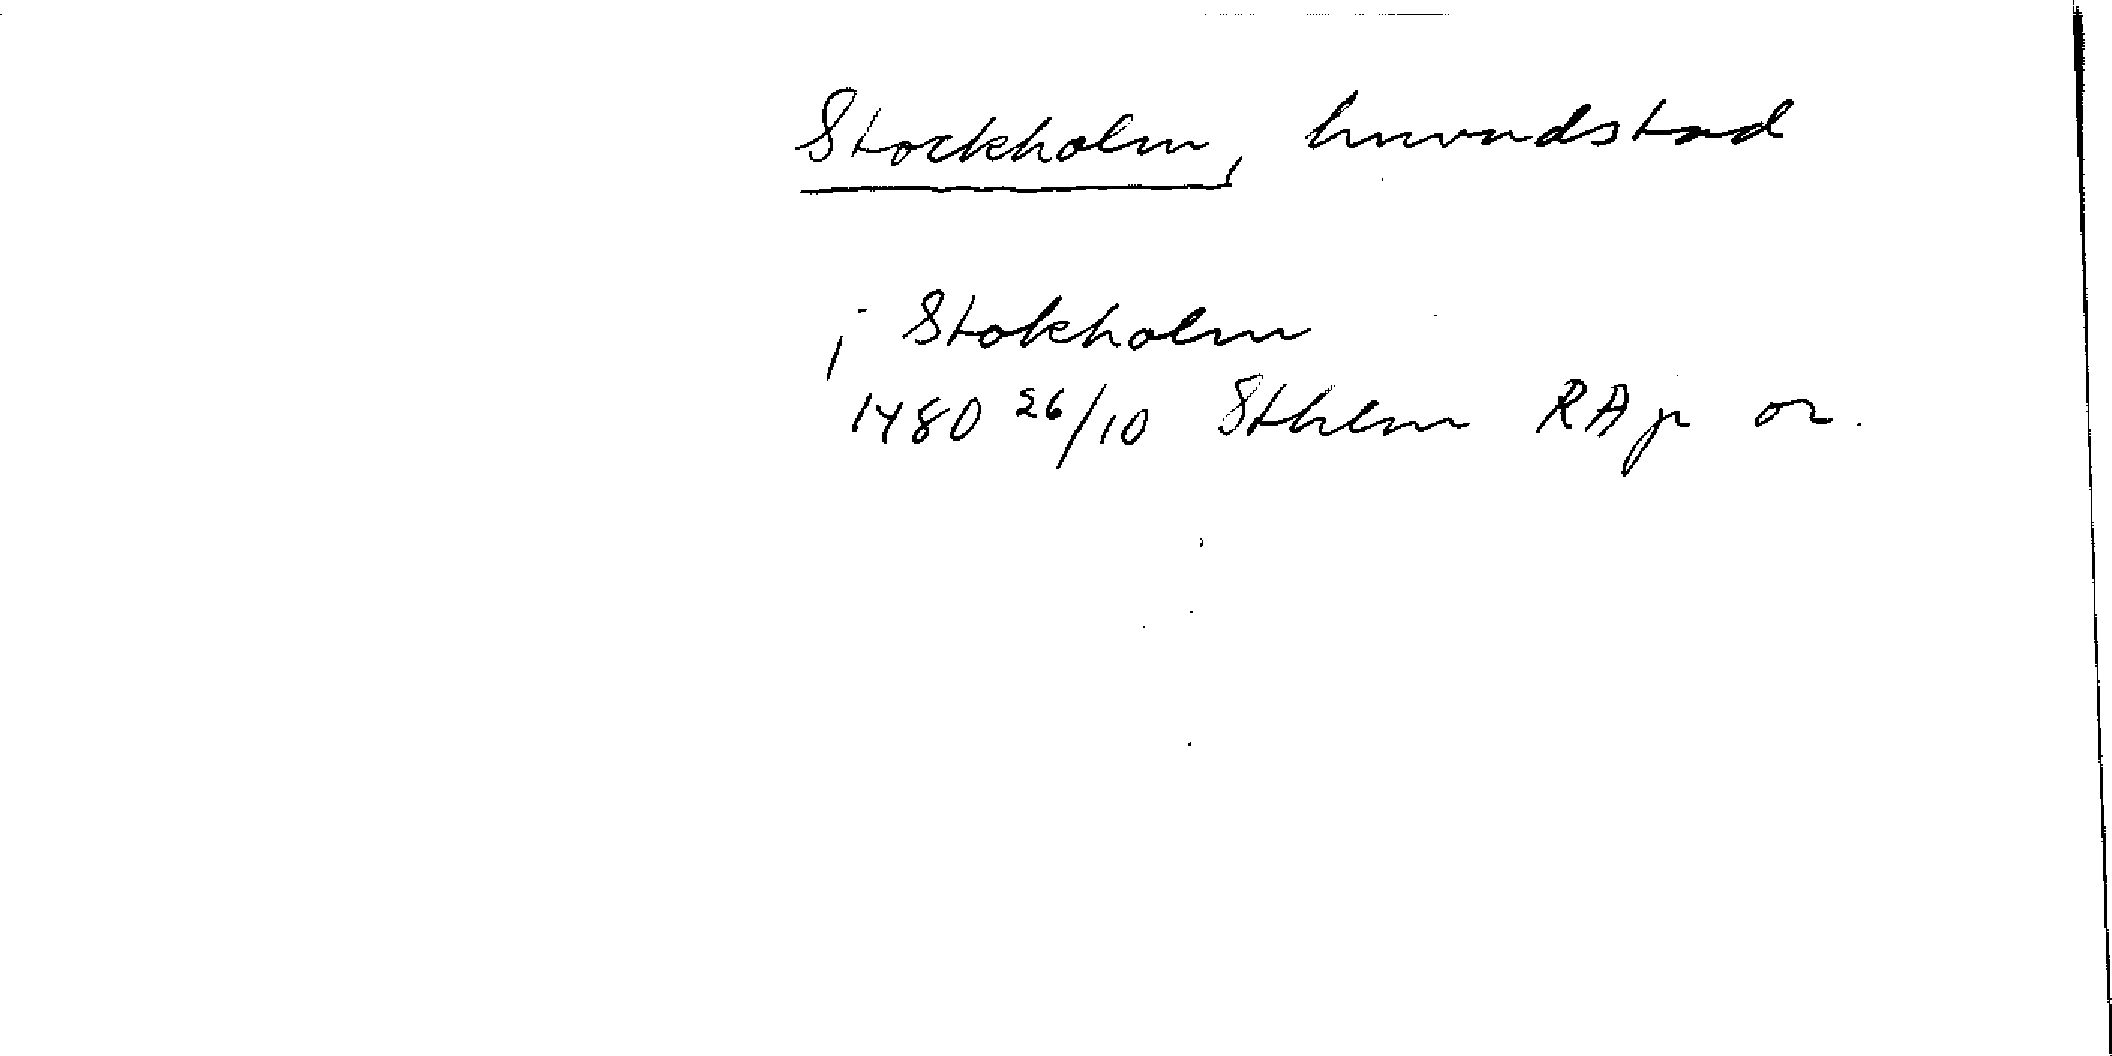 Stockholm, huvudstad
j Stokholm
1480 26/10 Sthlm RAp or.